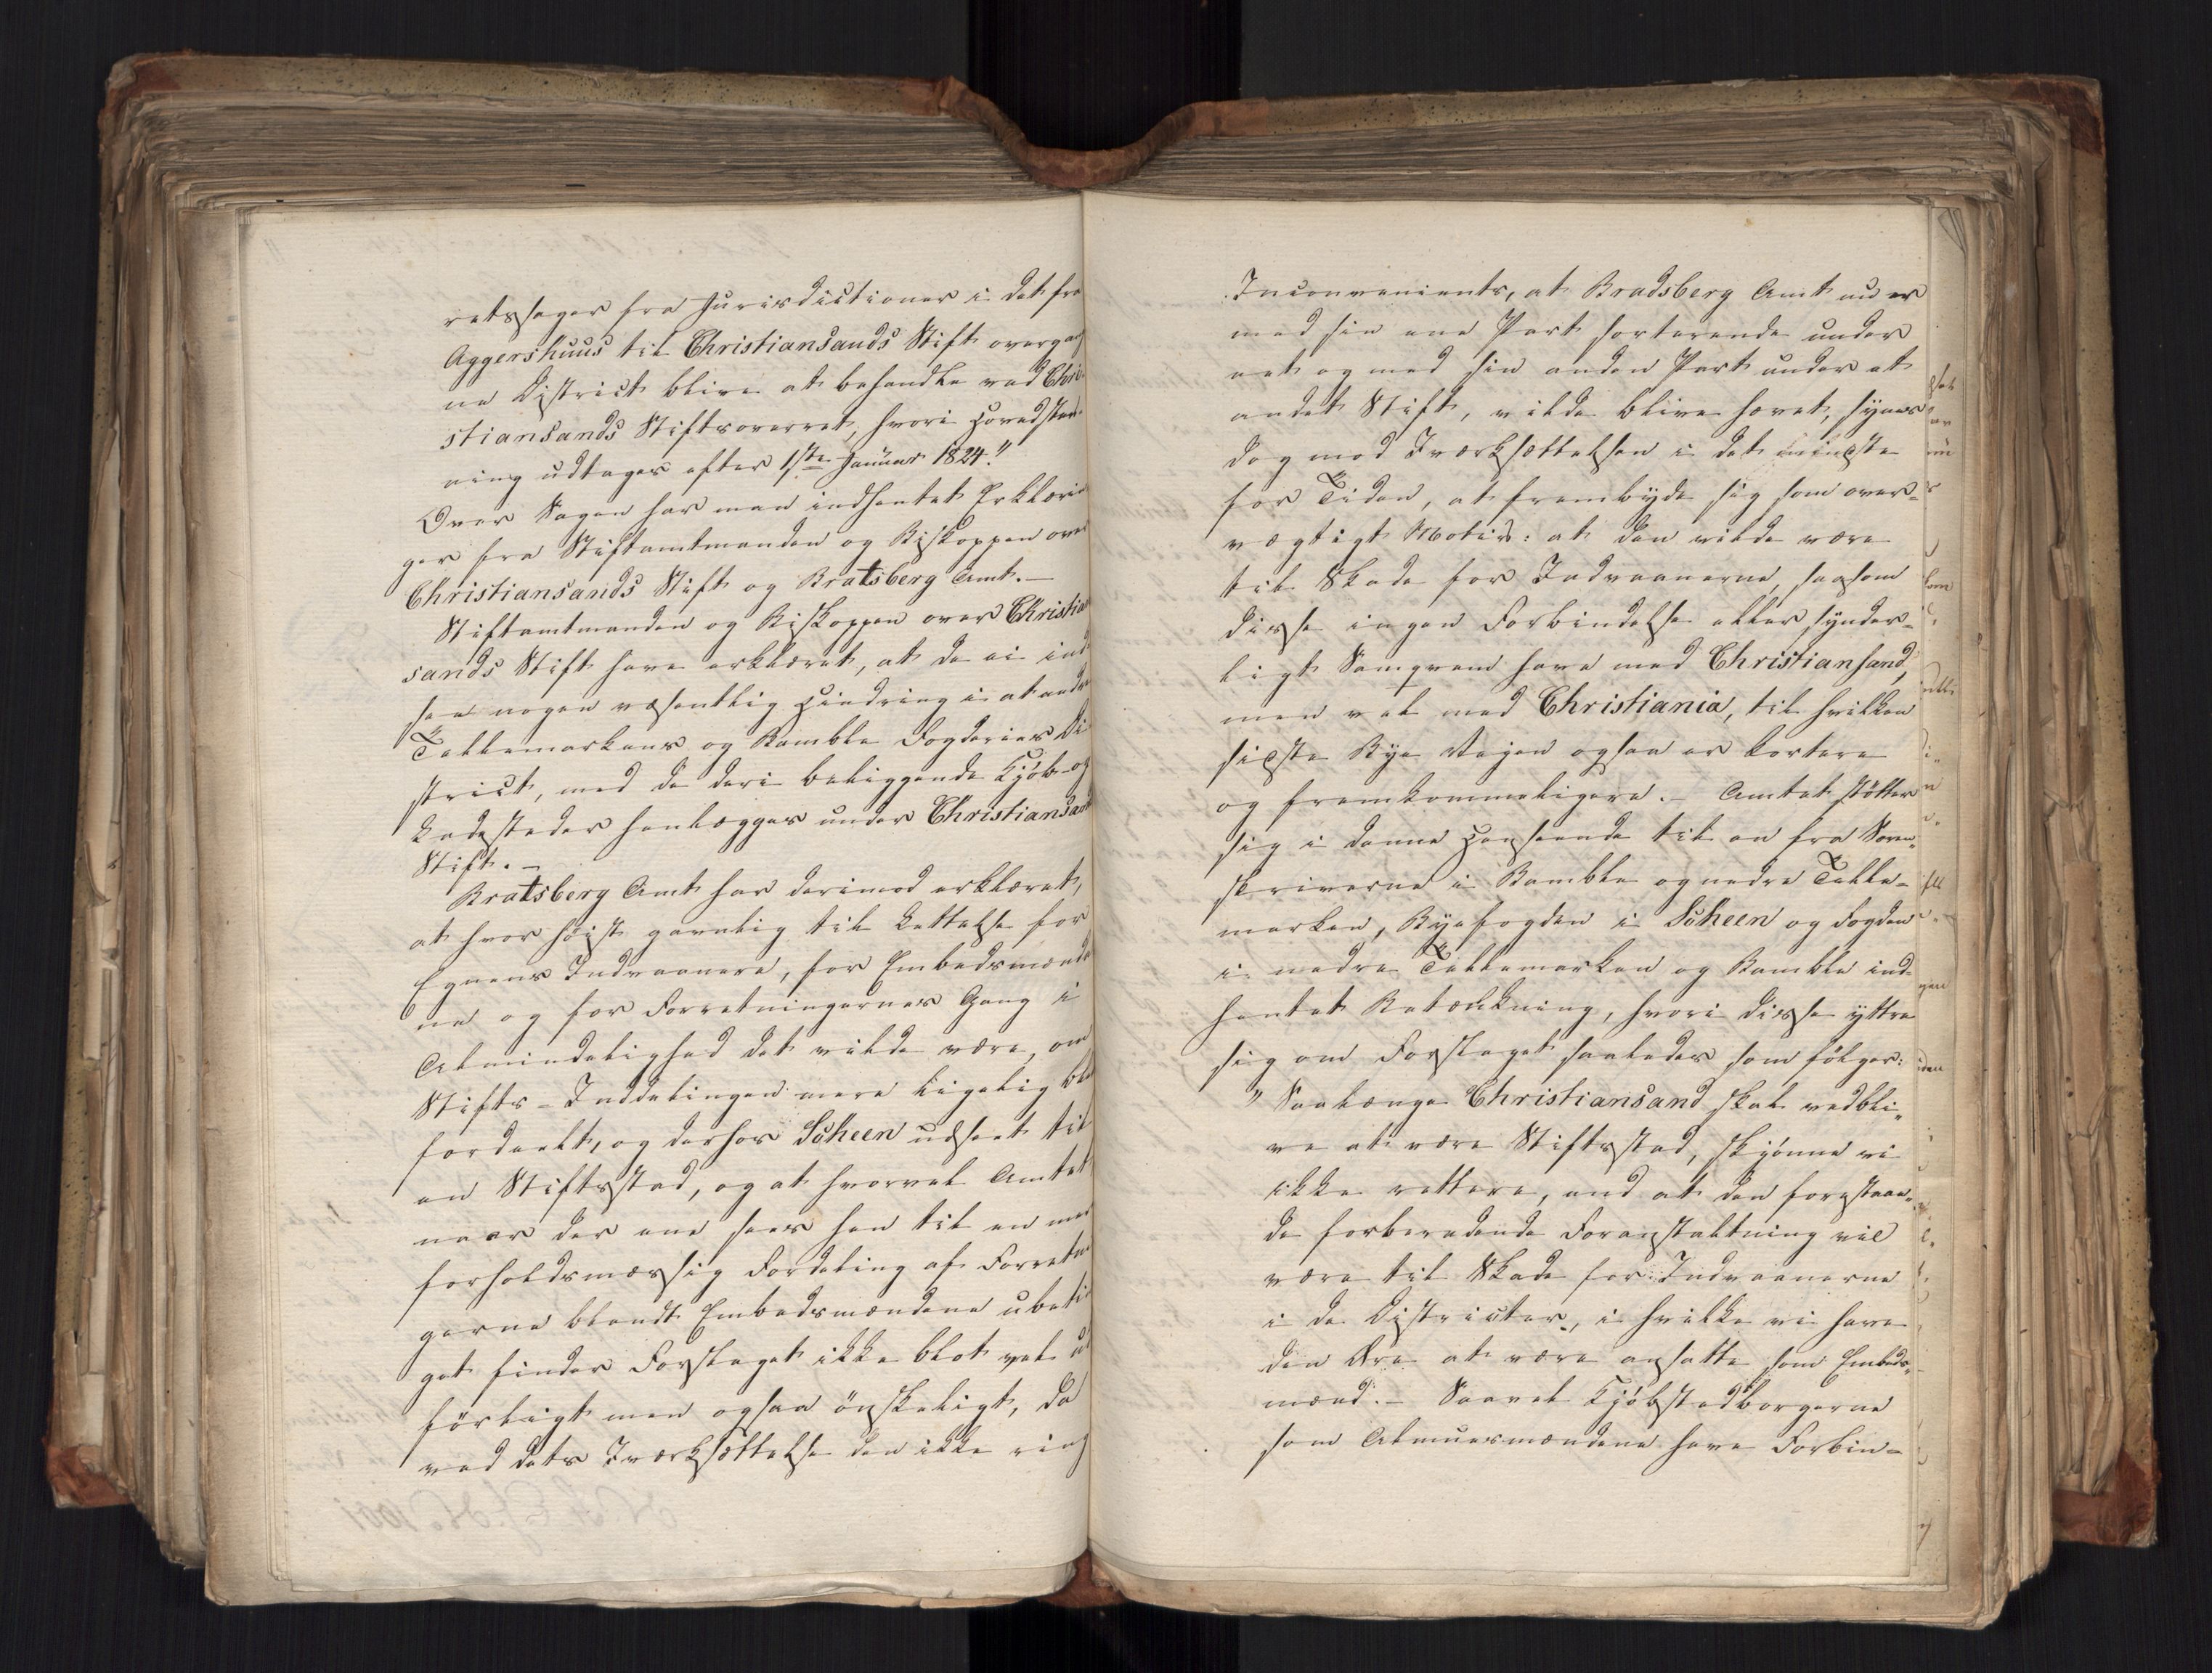 retssager fra Jurisdictioner i det fra
Aggershuus til Christiansands Stift overgaae
ne District blive at behandle ved Chri-
stiansands Stiftsoverret, hvori Hovedstev
ning udtages efter 1ste Januar 1824."
Over Sagen har man indhentet Erklærin
ger fra Stiftamtmanden og Biskoppen over
Christiansands Stift og Bratsberg Amt. –
Stiftamtmanden og Biskoppen over Christian
sands Stift have erklæret, at de ei ind
see nogen væsentlig Hindring i at nedre
Tellemarkens og Bamble Fogderies Di
strict, med de deri beliggende Kjøb- og
Ladesteder henlægges under Christiansands
Stift. –
Bratsberg Amt har derimod erklæret,
at hvor høist gavnlig til Lettelse for
Egnens Indvaanere, for Embedsmænde
ne og for Forretningernes Gang i
Almindelighed det vilde være, om
Stifts-Inddelingen mere ligelig blev
fordeelt, og derhos Scheen udseet til
en Stiftsstad, og at hvorvel Amtet
naar der ene sees hen til en mere
forholdsmæssig Fordeling af Forretnin
gerne blandt Embedsmændene ubetin
get finder Forslaget ikke blot vel ud
førligt men ogsaa ønskeligt, da
ved dets Iværksættelse den ikke ring
Inconvenients, at Bradsberg Amt nu er
med sin ene Part sorterende under
eet og med sin anden Part under et
andet Stift, vilde blive hævet, synes
dog mod Iværksættelsen i det mindste
for Tiden, at frembyde sig som over-
vægtigt Motiv: at den vilde være
til Skade for Indvaanerne, saasom
disse ingen Forbindelse eller synder-
ligt Samqvem have med Christiansand,
men vel med Christiania, til hvilken
sidste Bye Veyen ogsaa er kortere
og fremkommeligere. – Amtet støtter
sig i denne Henseende til en fra Soren-
skriverne i Bamble og nedre Telle-
marken, Byefogden i Scheen og Fogden
i nedre Tellemarken og Bamble ind-
hentet Betænkning, hvori disse yttre
sig om Forslaget saaledes som følger:
"Saalænge Christiansand skal vedbli-
ve at være Stiftsstad, skjønne vi
ikke rettere, end at den forestaaen-
de forberedende Foranstaltning vil
være til Skade for Indvaanerne
i de Districter, i hvilke vi have
den Ære at være ansatte som Embeds-
mænd. – Saavel Kjøbstedborgerne
som Almuesmændene have Forbin-